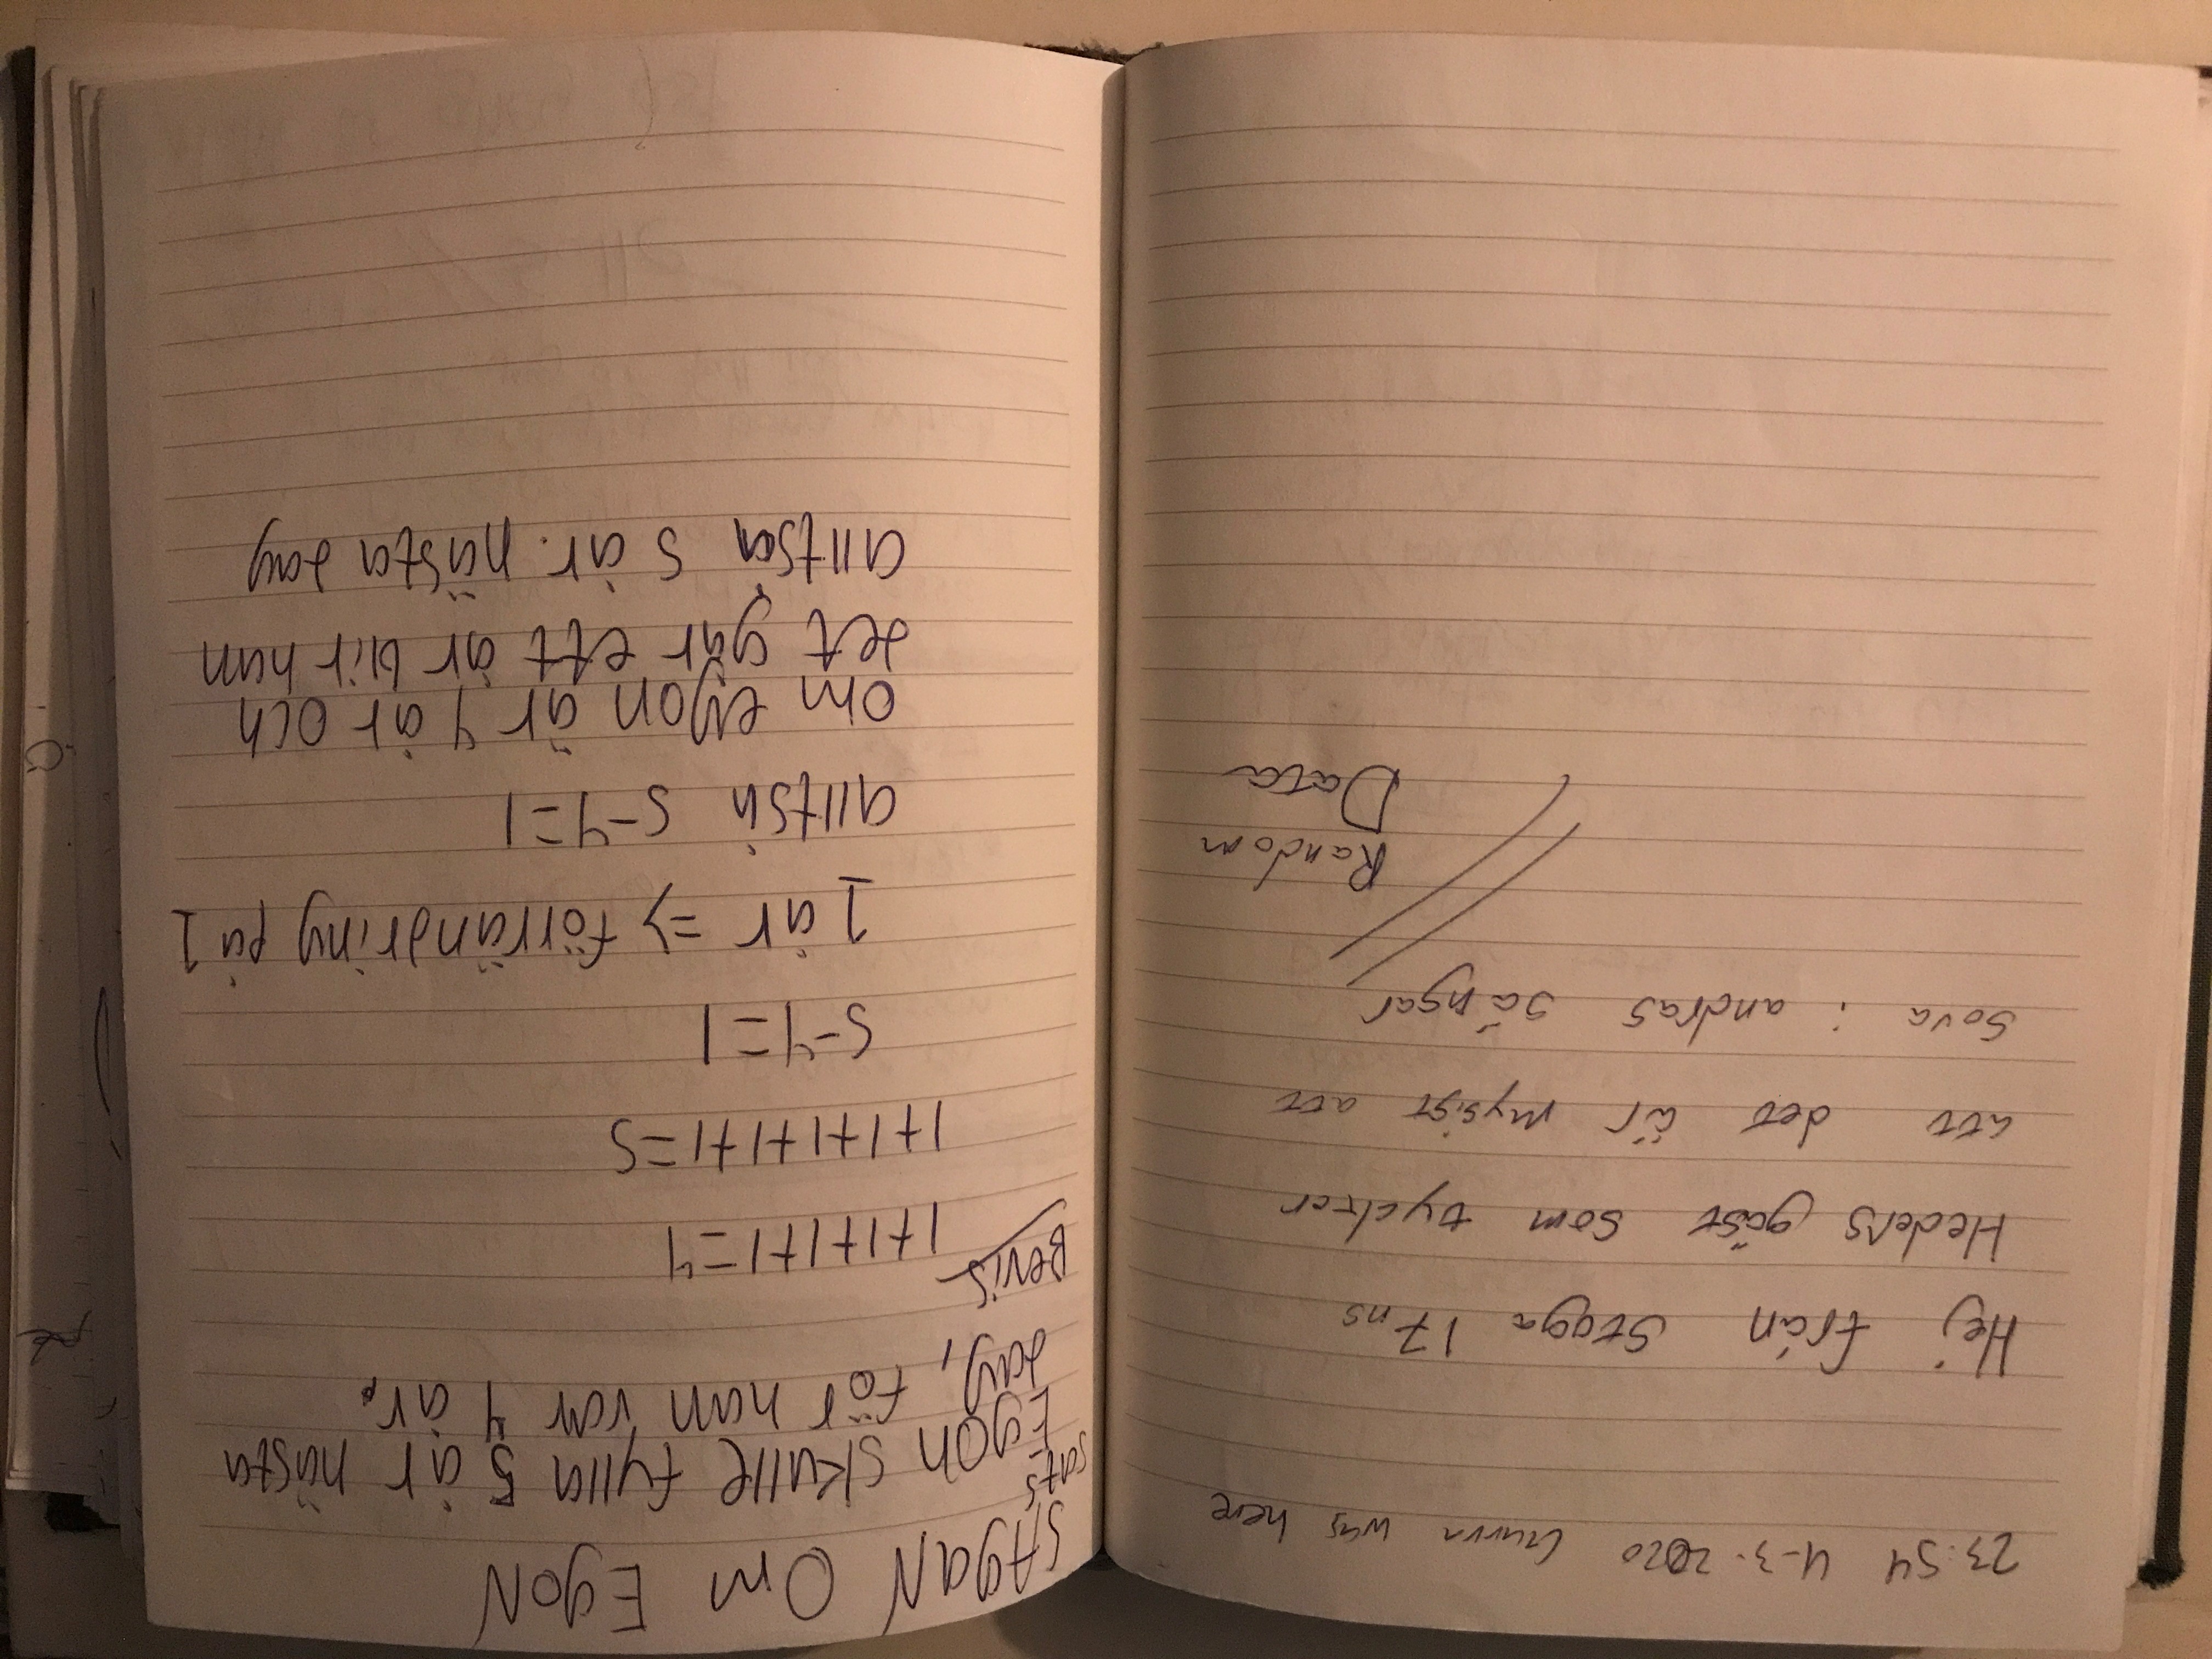 23:54 4-3-2020 was here
Hej från Stuga 17 ns
Heders gäst som tycker
att det är mysigt att
sova i andras sängar
// Random
Data
SAgaN Om EgoN
sats
Egon skulle fylla 5 år nästa
dag, för han var 4 år.
Bevis
1+1+1+1=4
1+1+1+1+1=5
5-4=1
1 år => förrändring på 1
alltså 5-4=1
om egon är 4 år och
det går ett år blir han
alltså 5 år. nästa dag